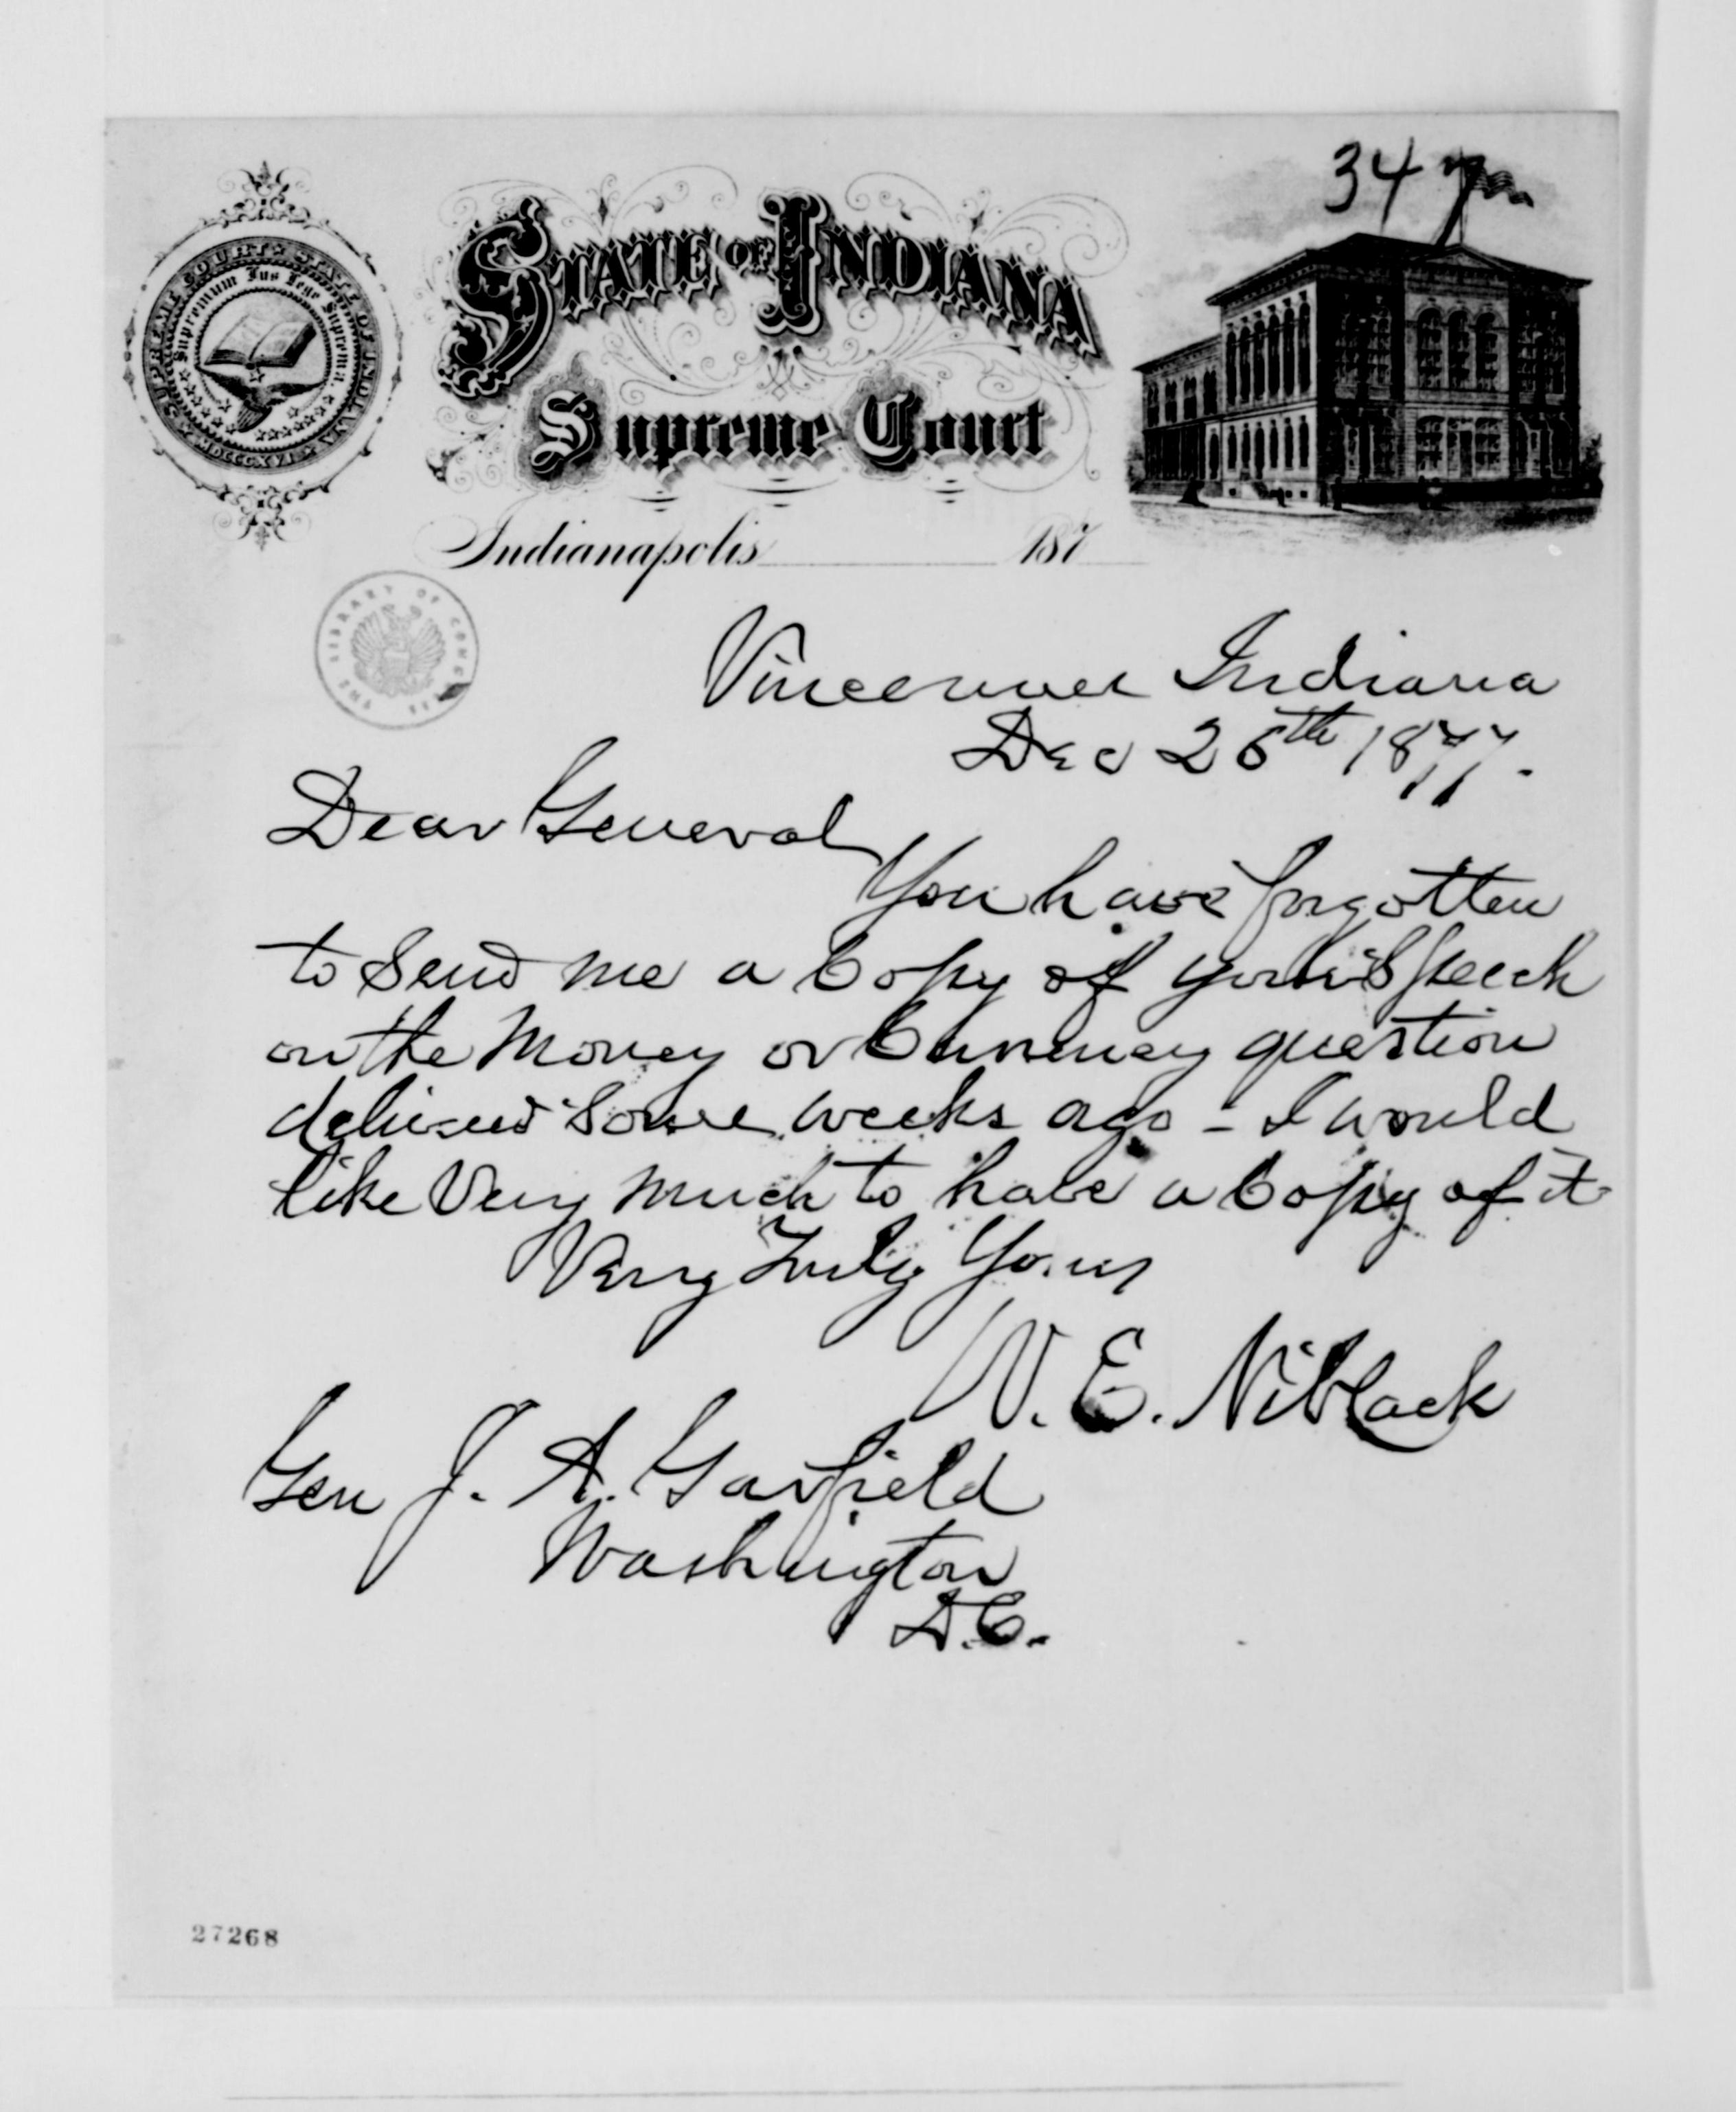 347
STATE OF INDIANA
Supreme Court
SUPREME COURT STATE OF INDIANA
Supremum Jus Lege Suprema
MDCCCXVI
Indianapolis 187
THE LIBRARY OF CONGRESS
Vincennes Indiana
Dec 26th 1877.
Dear General
You have forgotten
to send me a Copy of your Speech
on the Money or Currency question
delivered some weeks ago - I would
like Very much to have a Copy of it
Very Truly Yours
W. E. Niblack
Gen J. A. Garfield
Washington
D.C.
27268